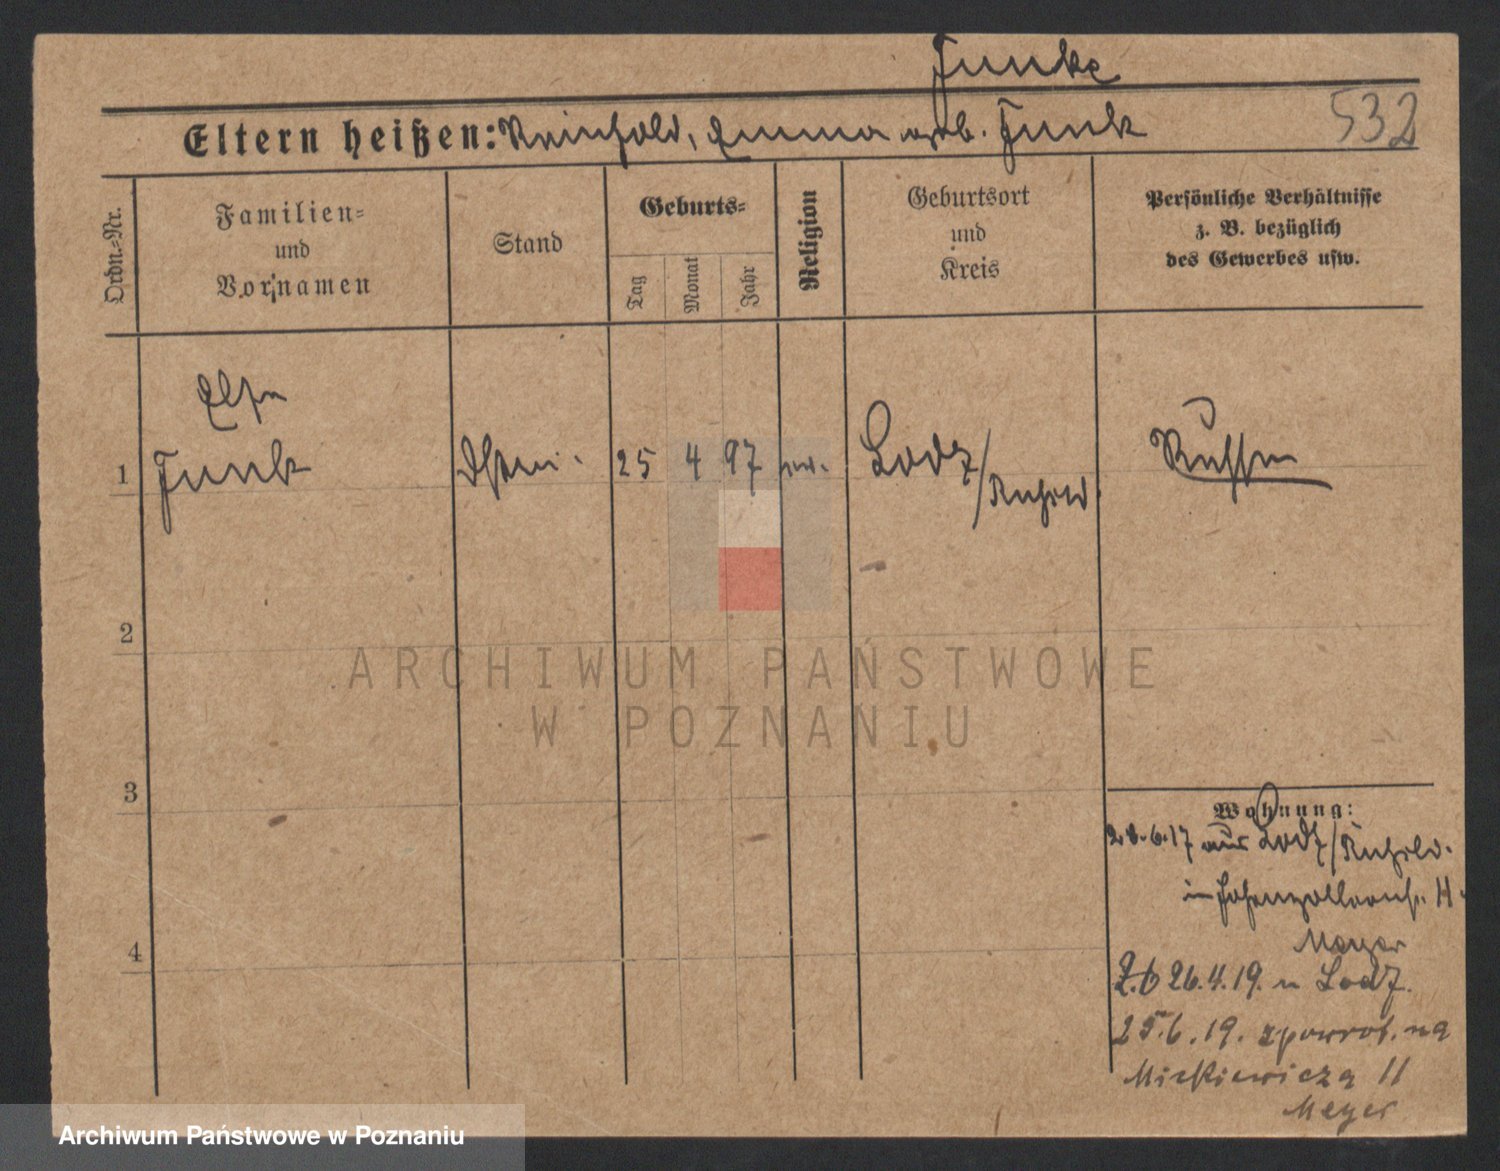 Funke
532
Eltern heißen: Reinhold, Emma geb. Funk
Ordn.=Nr.
Familien=
und
Vornamen
Stand
Geburts=
Tag
Monat
Jahr
Religion
Geburtsort
und
Kreis
Persönliche Verhältnisse
z. B. bezüglich
des Gewerbes usw.
Elsa
1 Funk 25 4 97 ev. Lodz / Rußld.
Russin
2
3
4
Wohnung:
28.6.17 aus Lodz / Rußld.
in Hohenzollernstr. 11
Meyer
26.4.19. n Lodz.
25.6.19. zpowrot. na
Mickiewicza 11
Meyer
ARCHIWUM PAŃSTWOWE
W POZNANIU
Archiwum Państwowe w Poznaniu